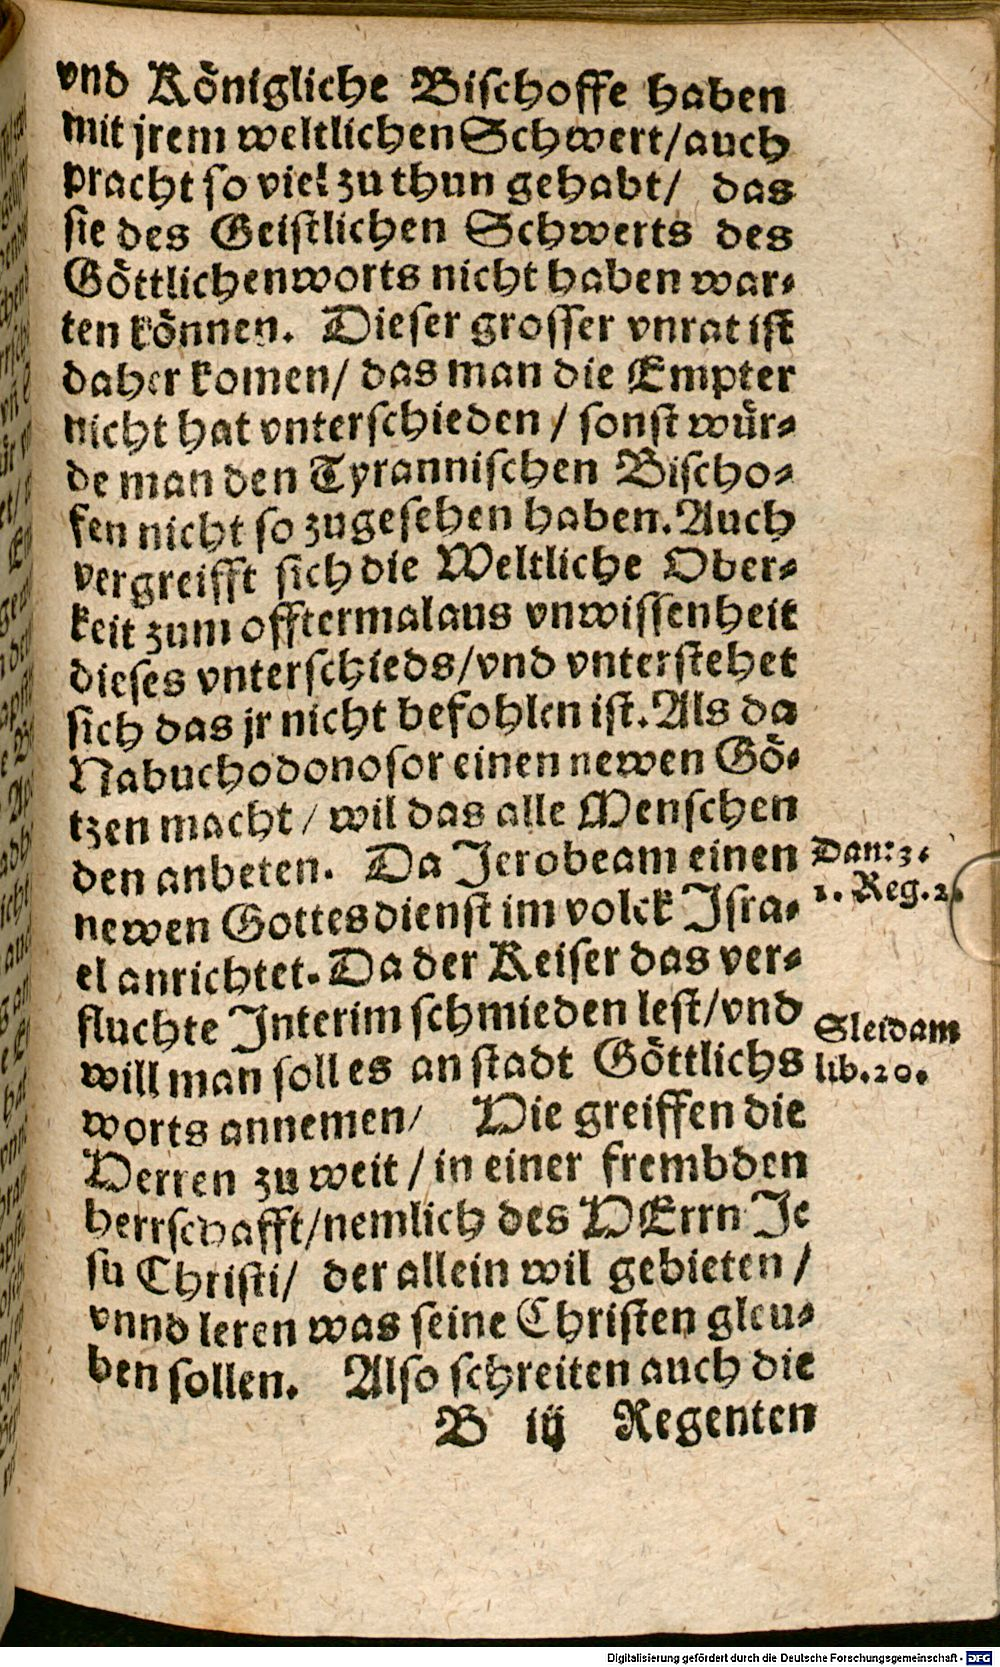 vnd Königliche Bischoffe haben
mit jrem weltlichen Schwert/auch
pracht so viel zu thun gehabt/ das
sie des Geistlichen Schwerts des
Göttlichenworts nicht haben war-
ten können. Dieser grosser vnrat ist
daher komen/ das man die Empter
nicht hat vnterschieden / sonst wür-
de man den Tyrannischen Bischo-
fen nicht so zugesehen haben. Auch
vergreifft sich die Weltliche Ober-
keit zum offtermalaus vnwissenheit
dieses vnterschieds/vnd vnterstehet
sich das jr nicht befohlen ist. Als da
Nabuchodonosor einen newen Gö-
tzen macht / wil das alle Menschen
den anbeten. Da Jerobeam einen
Dan: 3.
newen Gottesdienst im volck Isra-
1. Reg. 2.
el anrichtet. Da der Keiser das ver-
fluchte Interim schmieden lest/vnd
Sleidam
will man soll es an stadt Göttlichs
lib. 20.
worts annemen/ Hie greiffen die
Herren zu weit / in einer frembden
herrschafft/nemlich des HErrn Je
su Christi/ der allein wil gebieten /
vnnd leren was seine Christen gleu-
ben sollen. Also schreiten auch die
B iij Regenten
Digitalisierung gefördert durch die Deutsche Forschungsgemeinschaft - DFG